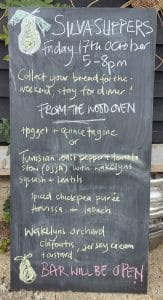 SILVA SUPPERS
Friday 17th October
5-8pm
Collect your bread for the
weekend, stay for dinner!
FROM THE WOOD OVEN
+ quince tagine
or
Tunisian roast pepper + tomato
stew (OJJA) with wakelyns
squash + lentils
spiced chickpea puree
harissa + labneh
Wakelyns orchard
clafoutis, jersey cream
custard
BAR WILL BE OPEN